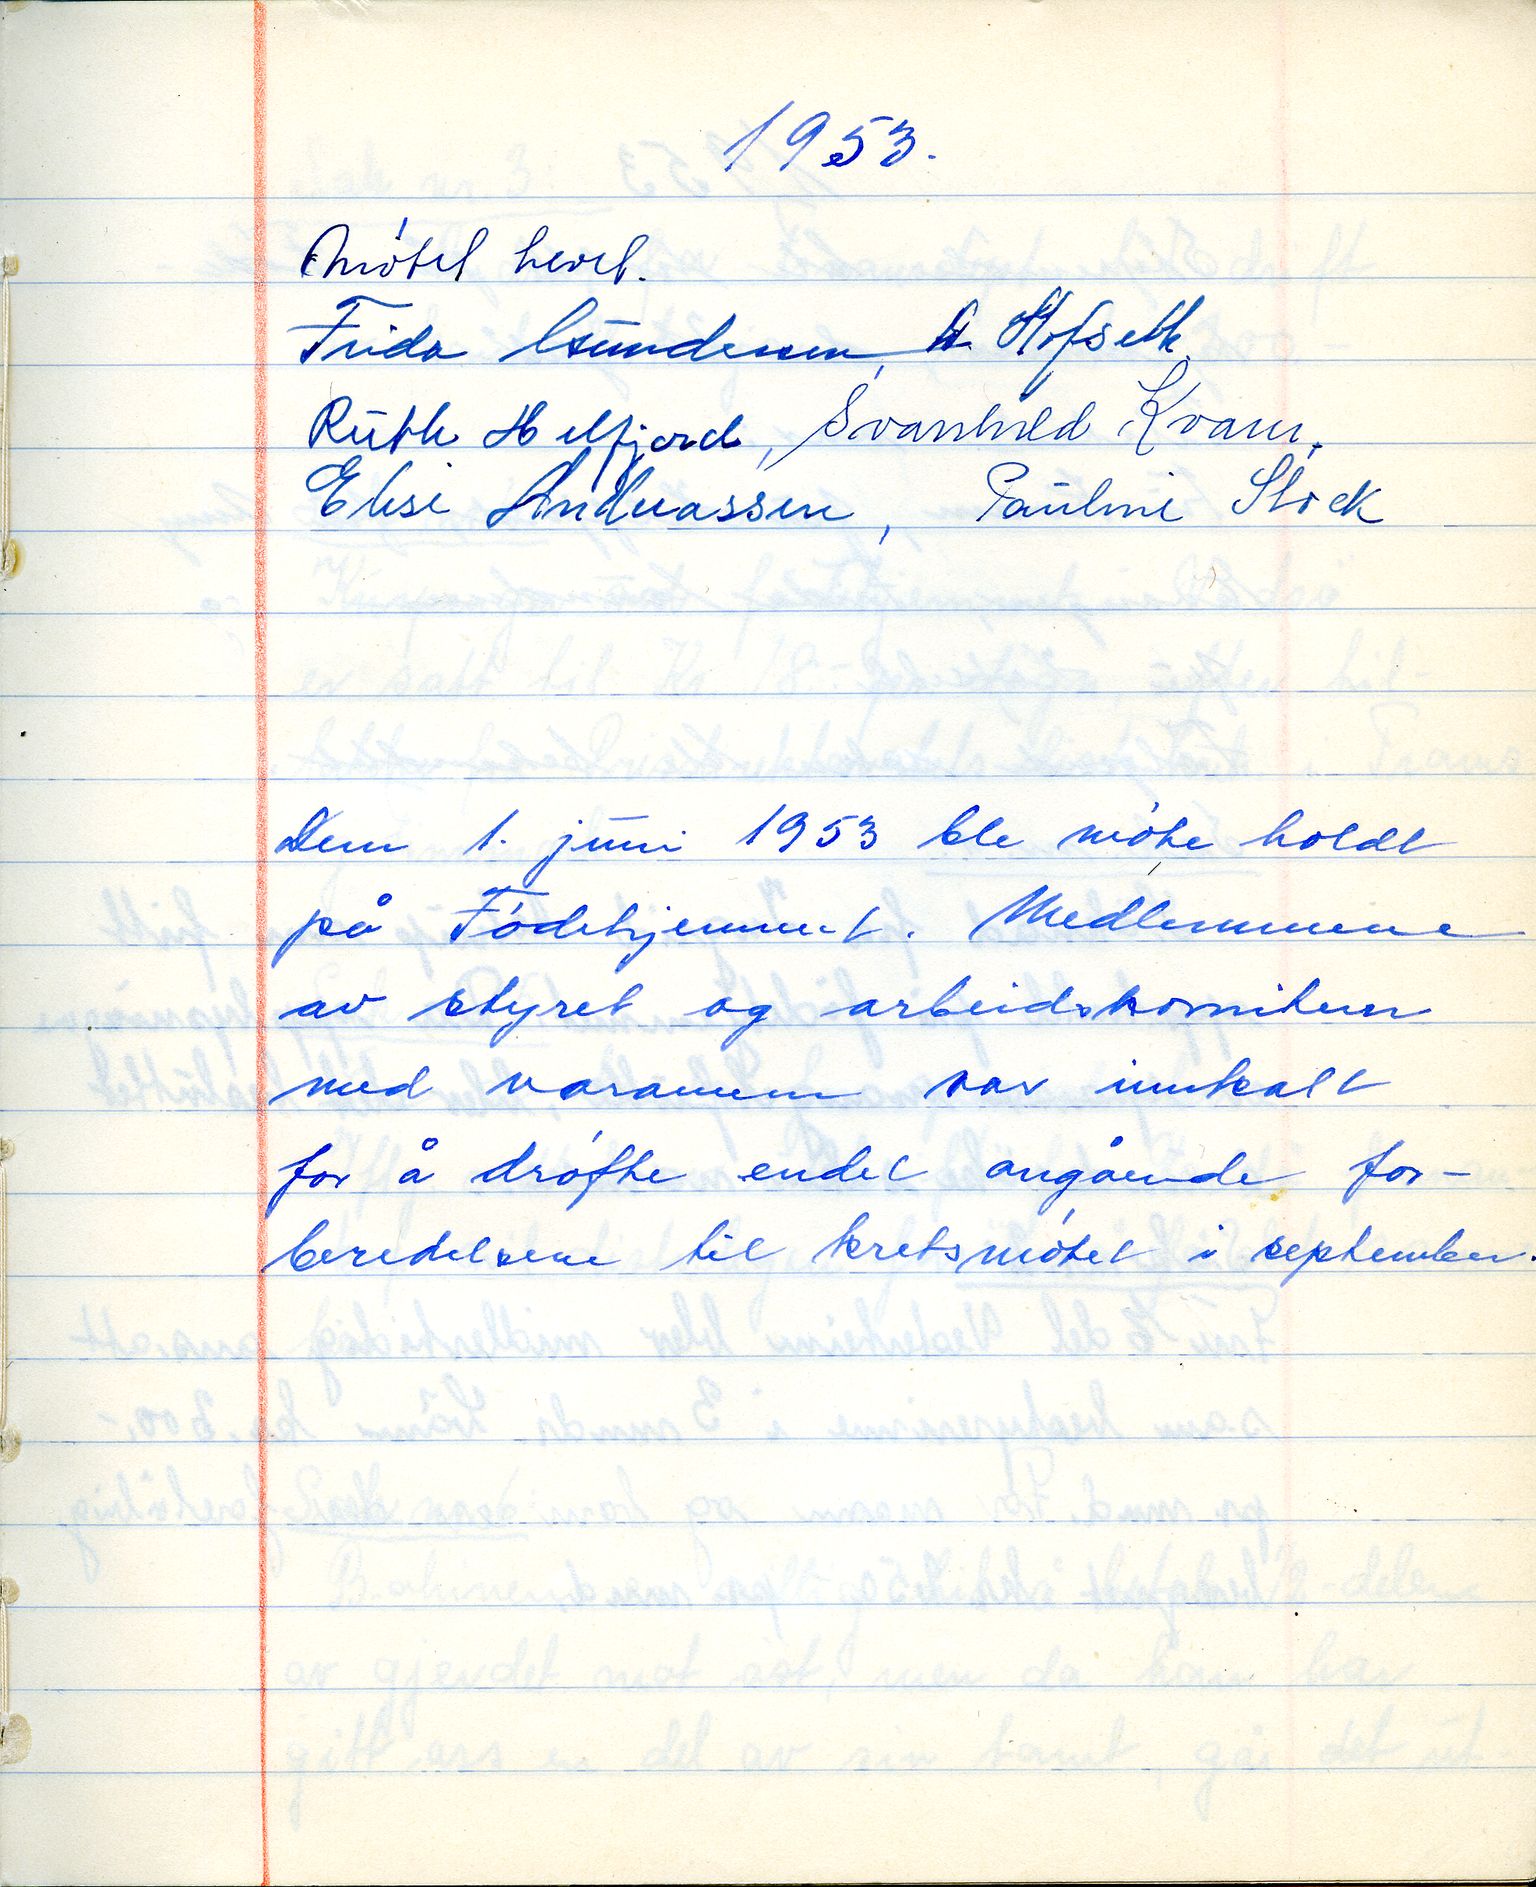 1953.
Møtet hevet.
Frida Gundersen, A. Hofseth
Ruth Helfjord, Svanhild Kvam.
Elise Andreassen, Pauline Stock
Den 1. juni 1953 ble møte holdt
på Fødehjemmet. Medlemmene
av styret og arbeidskomiteen
med varamenn var innkalt
for å drøfte endel angående for-
beredelsene til kretsmøtet i september.